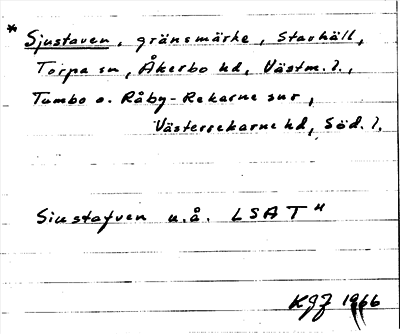 * Sjustaven, gränsmärke, Stavhäll,
Torpa sn, Åkerbo hd, Västm. l.,
Tumbo o. Råby-Rekarne snr,
Västerrekarne hd, Söd. l.
Siustafven u.å. LSA T"
KGJ 1966